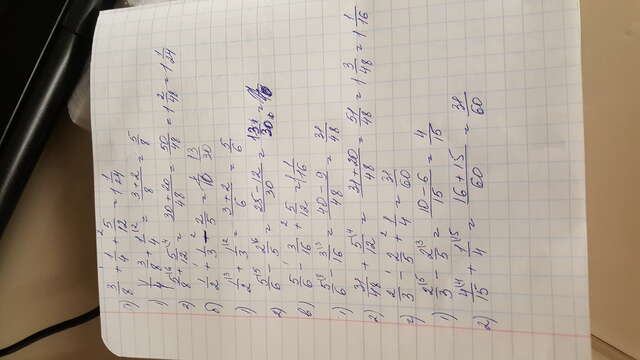 а) 3/8 +¹ 1/4 +² 5/12 = 1 1/24
1) 3/8 + 1/4⁽² = 3+2/8 = 5/8
2) 5/8⁽⁶ + 5/12⁽⁴ = 30+20/48 = 50/48 = 1 2/48 = 1 1/24
б) 1/2 +¹ 1/3 -² 2/5 = 13/30
1) 1/2⁽³ + 1/3⁽² = 3+2/6 = 5/6
2) 5/6⁽⁵ - 2/5⁽⁶ = 25-12/30 = 13/30
в) 5/6 -¹ 3/16 +² 5/12 = 1 1/16
1) 5/6⁽⁸ - 3/16⁽³ = 40-9/48 = 31/48
2) 31/48 + 5/12⁽⁴ = 31+20/48 = 51/48 = 1 3/48 = 1 1/16
г) 2/3 -¹ 2/5 +² 1/4 = 31/60
1) 2/3⁽⁵ - 2/5⁽³ = 10-6/15 = 4/15
2) 4/15⁽⁴ + 1/4⁽¹⁵ = 16+15/60 = 31/60